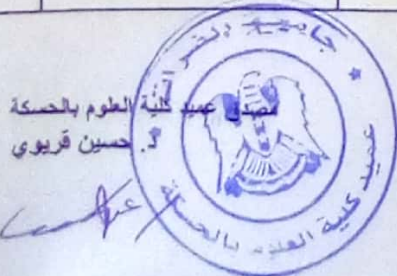 جامعة الفرات
مصدق عميد كلية العلوم بالحسكة
د. حسين قريوي
عميد كلية العلوم بالحسكة